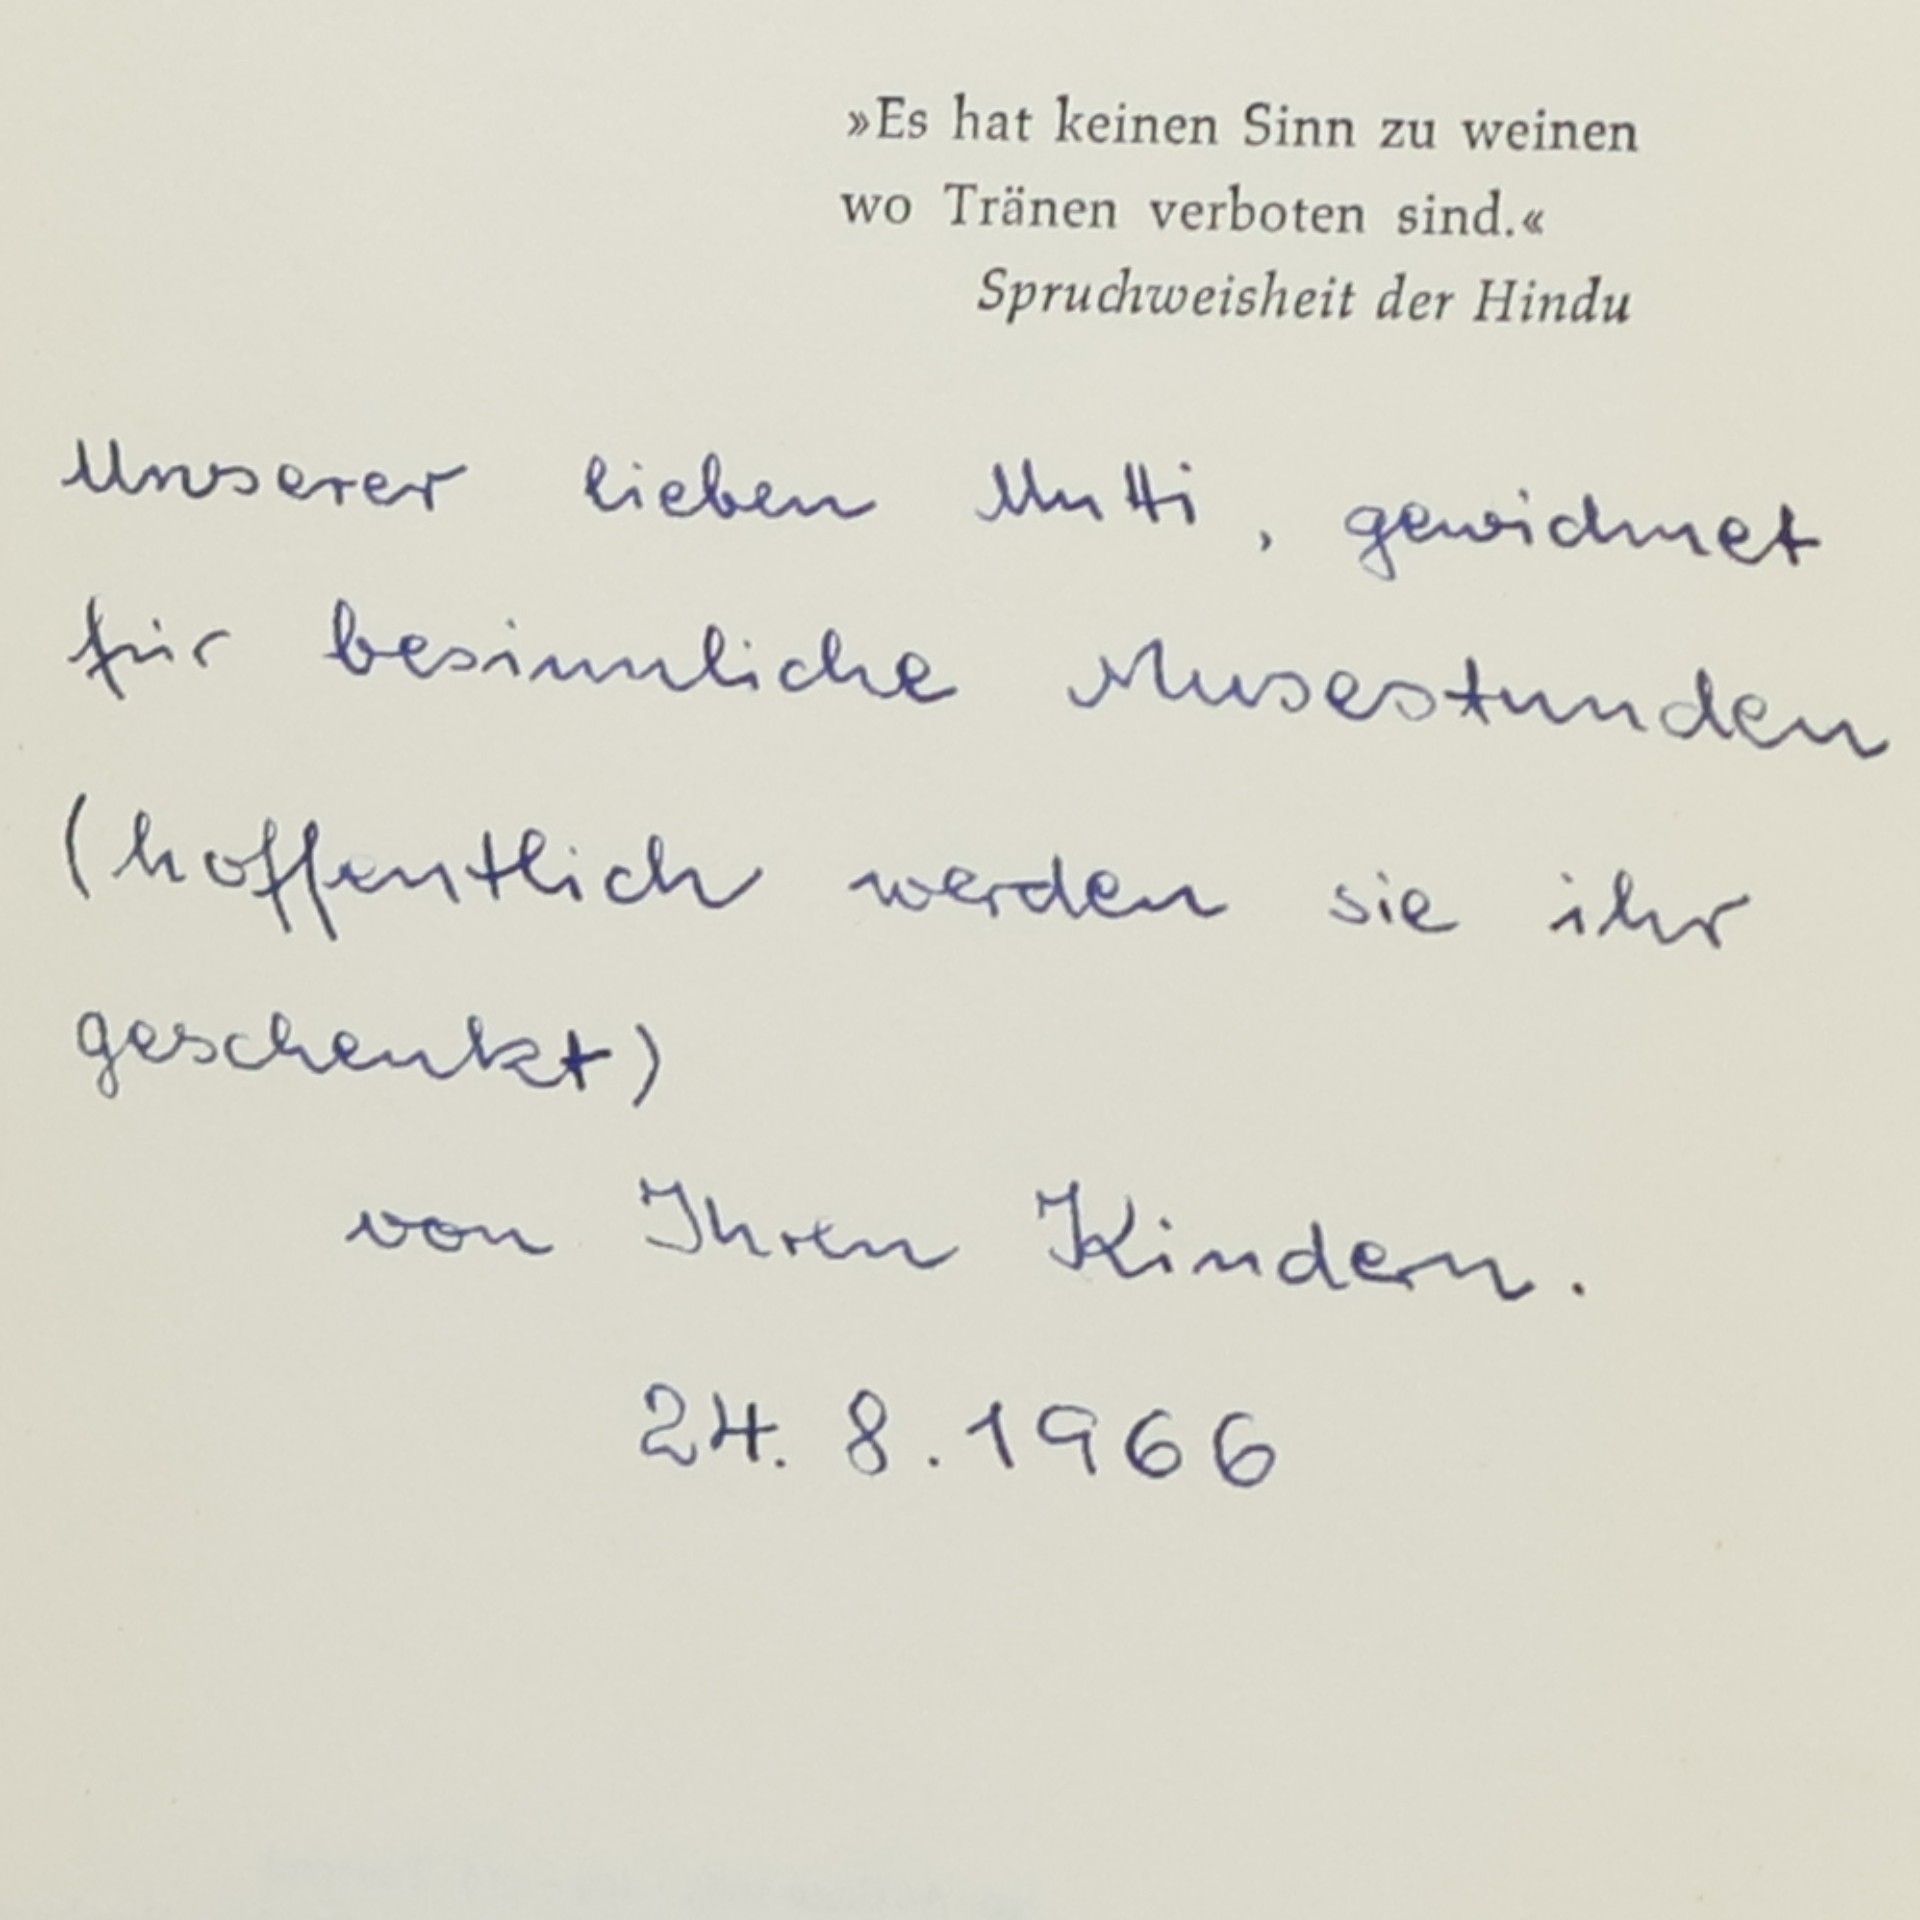 »Es hat keinen Sinn zu weinen
wo Tränen verboten sind.«
Spruchweisheit der Hindu
Unserer lieben Mutti, gewidmet
für besinnliche Musestunden
(hoffentlich werden sie ihr
geschenkt)
von Ihren Kindern.
24. 8. 1966